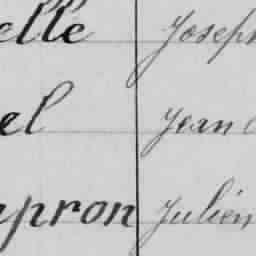 elle Joseph
el Jean
apron Julien